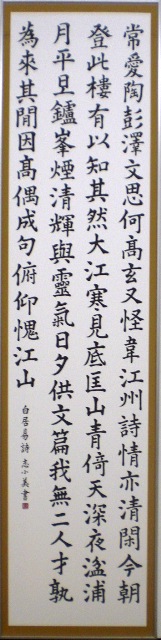 常愛陶彭澤文思何髙玄又怪韋江州詩情亦清閑今朝
登此樓有以知其然大江寒見底匡山青倚天深夜湓浦
月平旦鑪峯煙清輝與靈氣日夕供文篇我無二人才孰
為來其間因髙偶成句俯仰愧江山
白居易詩 志小美書